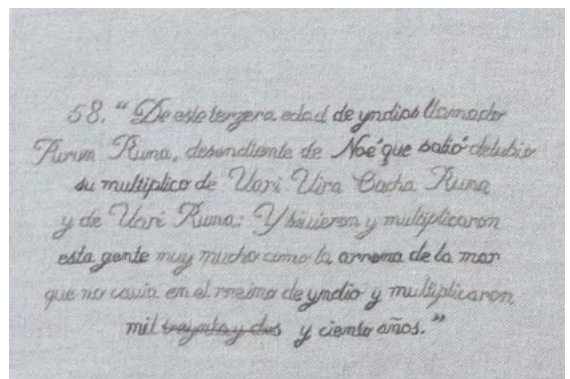 58. “De este terzera edad de yndios llamado
Purun Runa, desendiente de Noé que salió delubio
su multiplico de Uari Uira Cocha Runa
y de Uari Runa: Y biuieron y multiplicaron
esta gente muy mucho como la arrema de la mar
que no cauia en el rreino de yndio y multiplicaron
mil treynta y dos y ciento años.”